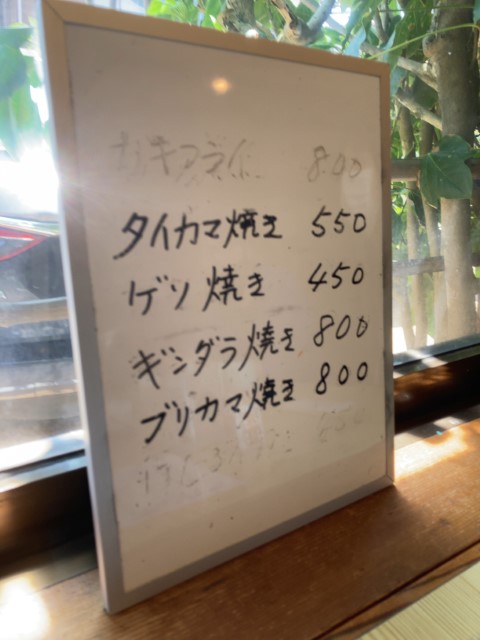 カキフライ 800
タイカマ焼き 550
ゲソ焼き 450
ギンダラ焼き 800
ブリカマ焼き 800